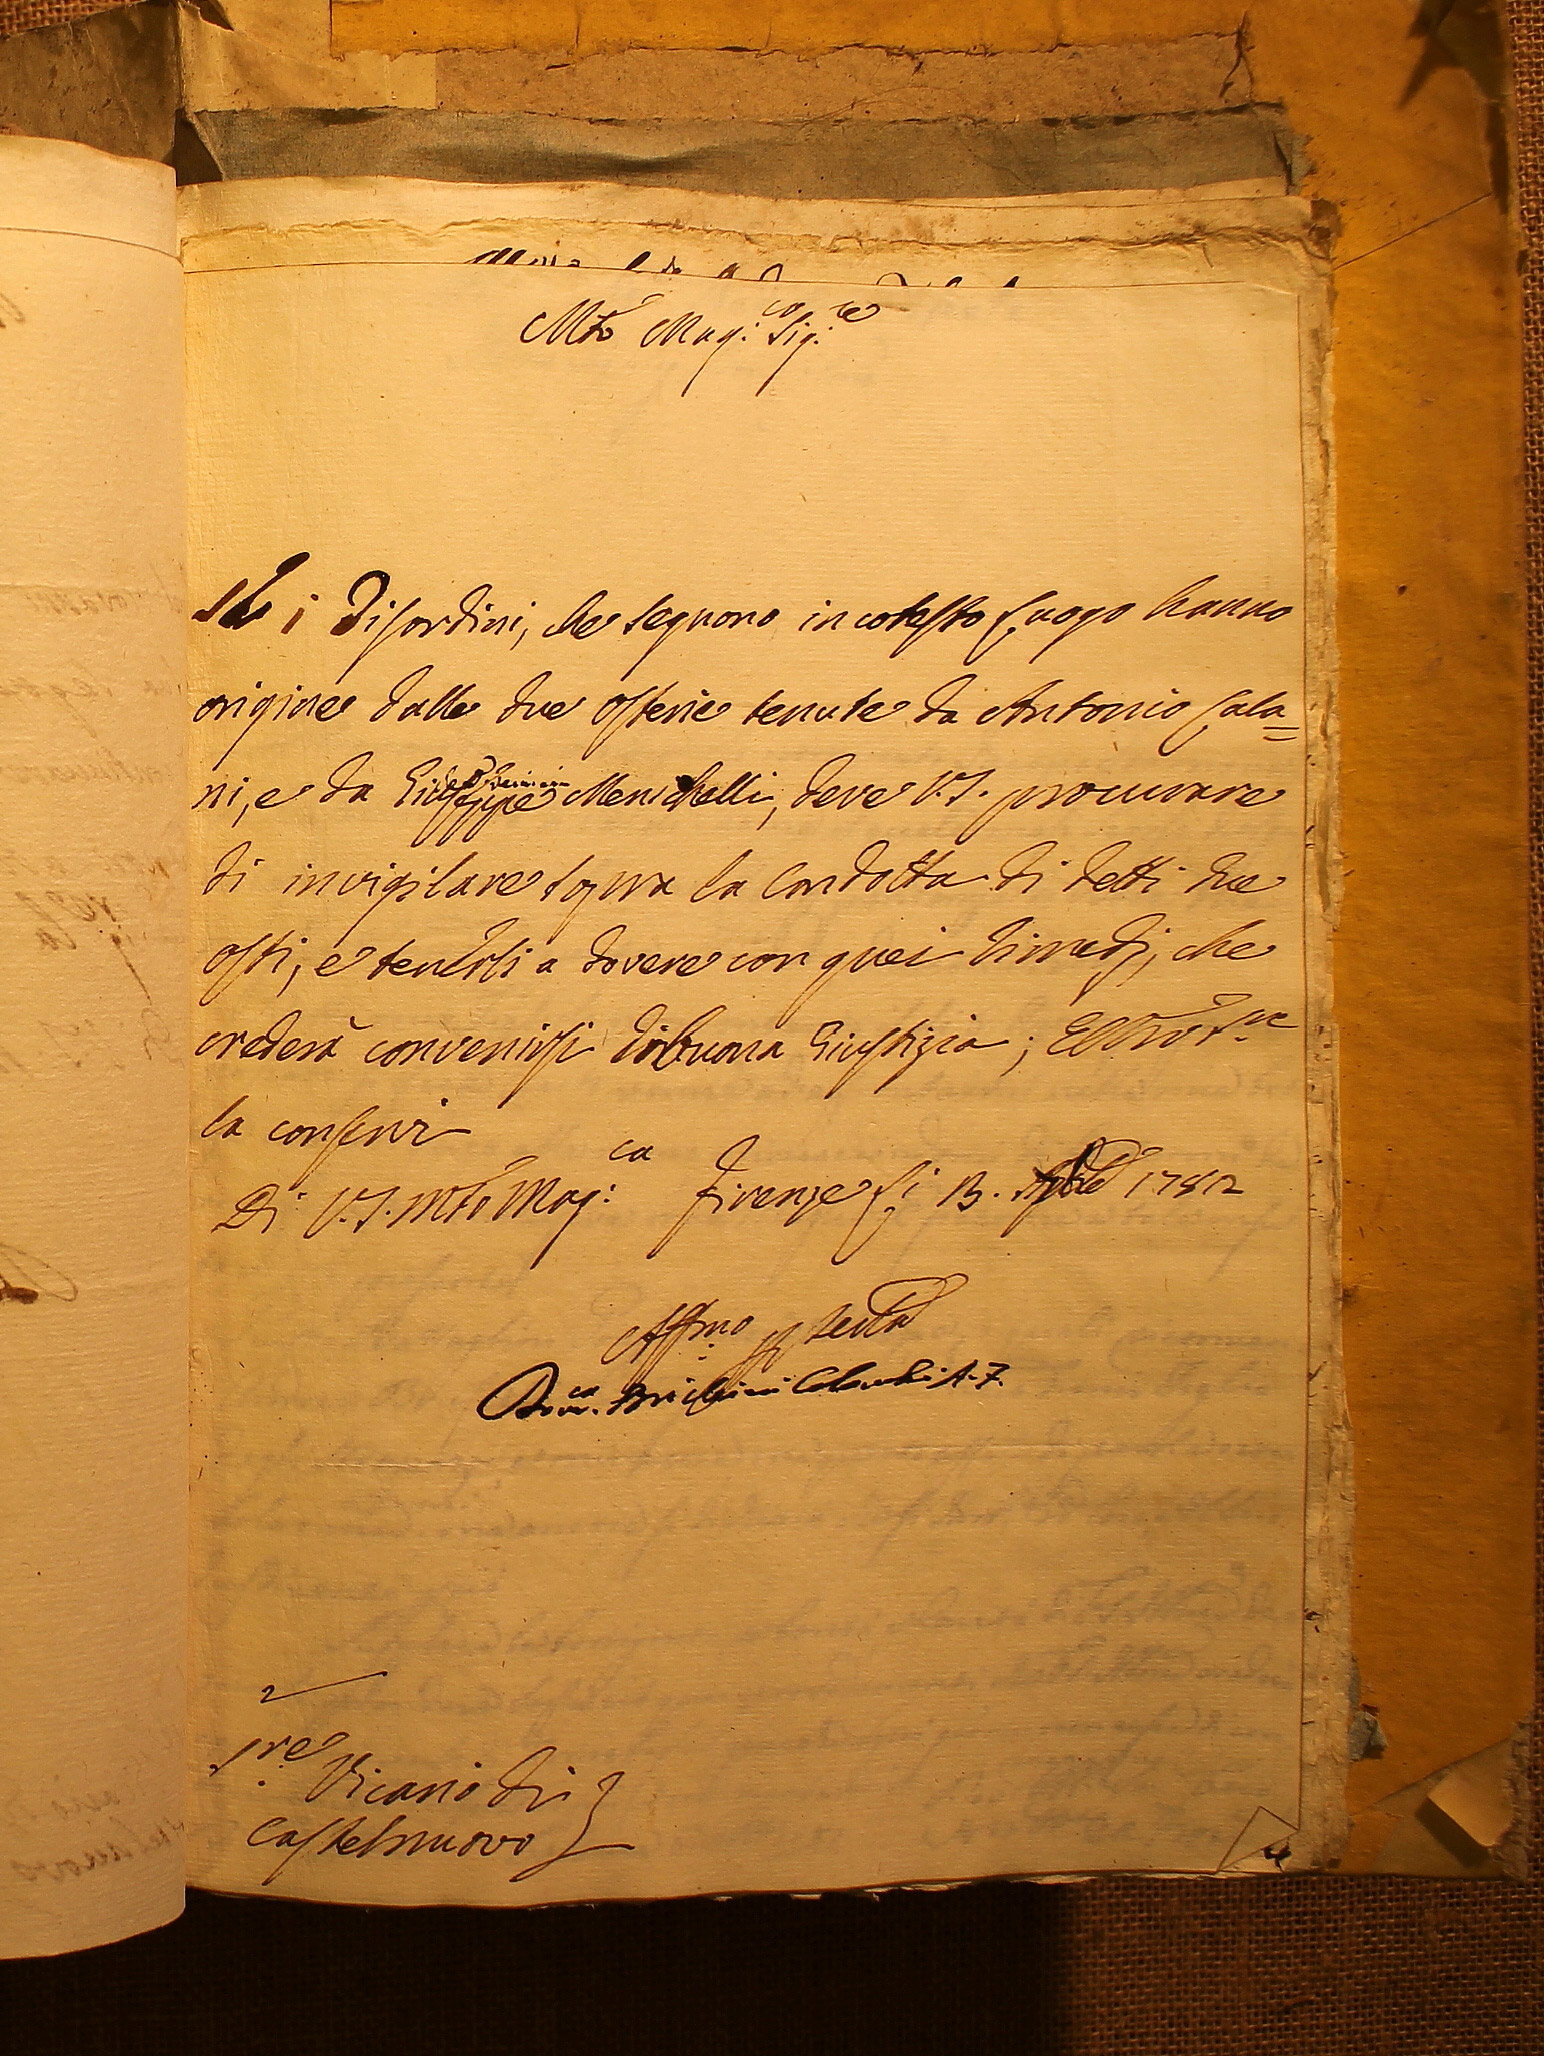 Mto Mag:co Sig:re
Se i Disordini, che seguono in cotesto Luogo hanno
origine dalle due osterie tenute da Antonio Gala=
ni, e da Giuseppe Menichelli, deve V.S. procurare
di invigilare sopra la Condotta di detti due
osti, e tenerli a dovere con quei rimedj, che
crederà convenirsi di buona Giustizia; E
la conservi
Di V.S. Mto Mag:ca Firenze li 13. 1782
Affmo
Sre. Vicario di
Castelnuovo